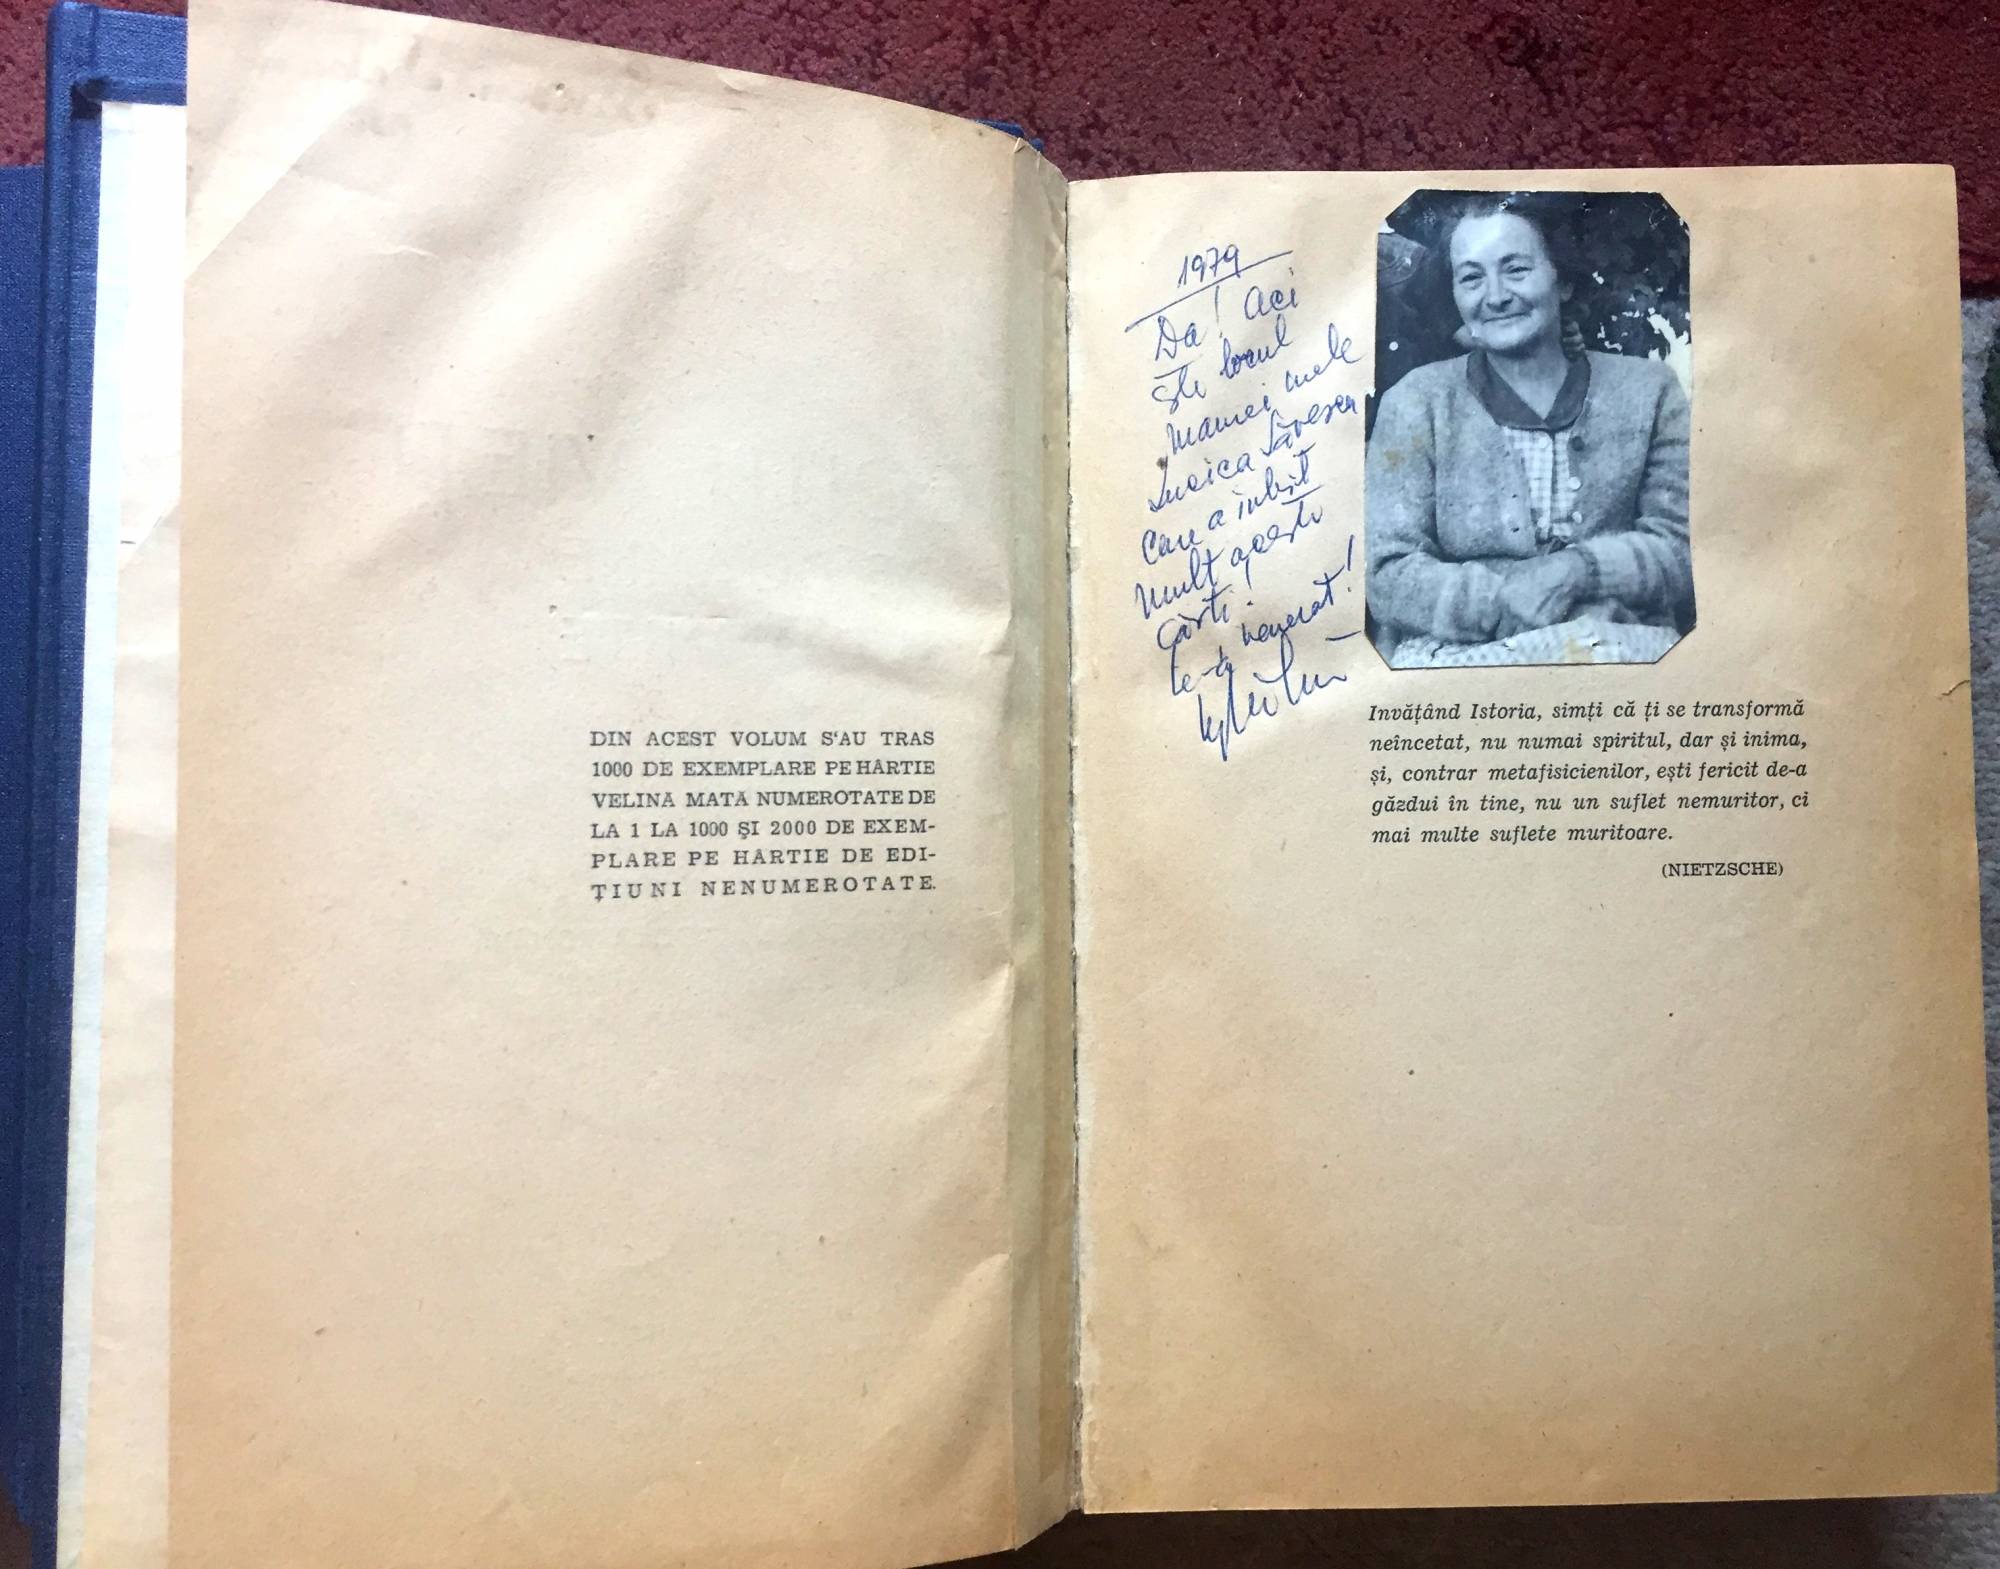 DIN ACEST VOLUM S'AU TRAS
1000 DE EXEMPLARE PE HARTIE
VELINA MATA NUMEROTATE DE
LA 1 LA 1000 ŞI 2000 DE EXEM-
PLARE PE HARTIE DE EDI-
ŢIUNI NENUMEROTATE.
1979
Da! Aci
este locul
mamei mele
Săvescu
care a iubit
mult aceste
cărți!
le-a venerat!
Invățând Istoria, simți că ți se transformă
neîncetat, nu numai spiritul, dar și inima,
și, contrar metafisicienilor, ești fericit de-a
găzdui în tine, nu un suflet nemuritor, ci
mai multe suflete muritoare.
(NIETZSCHE)